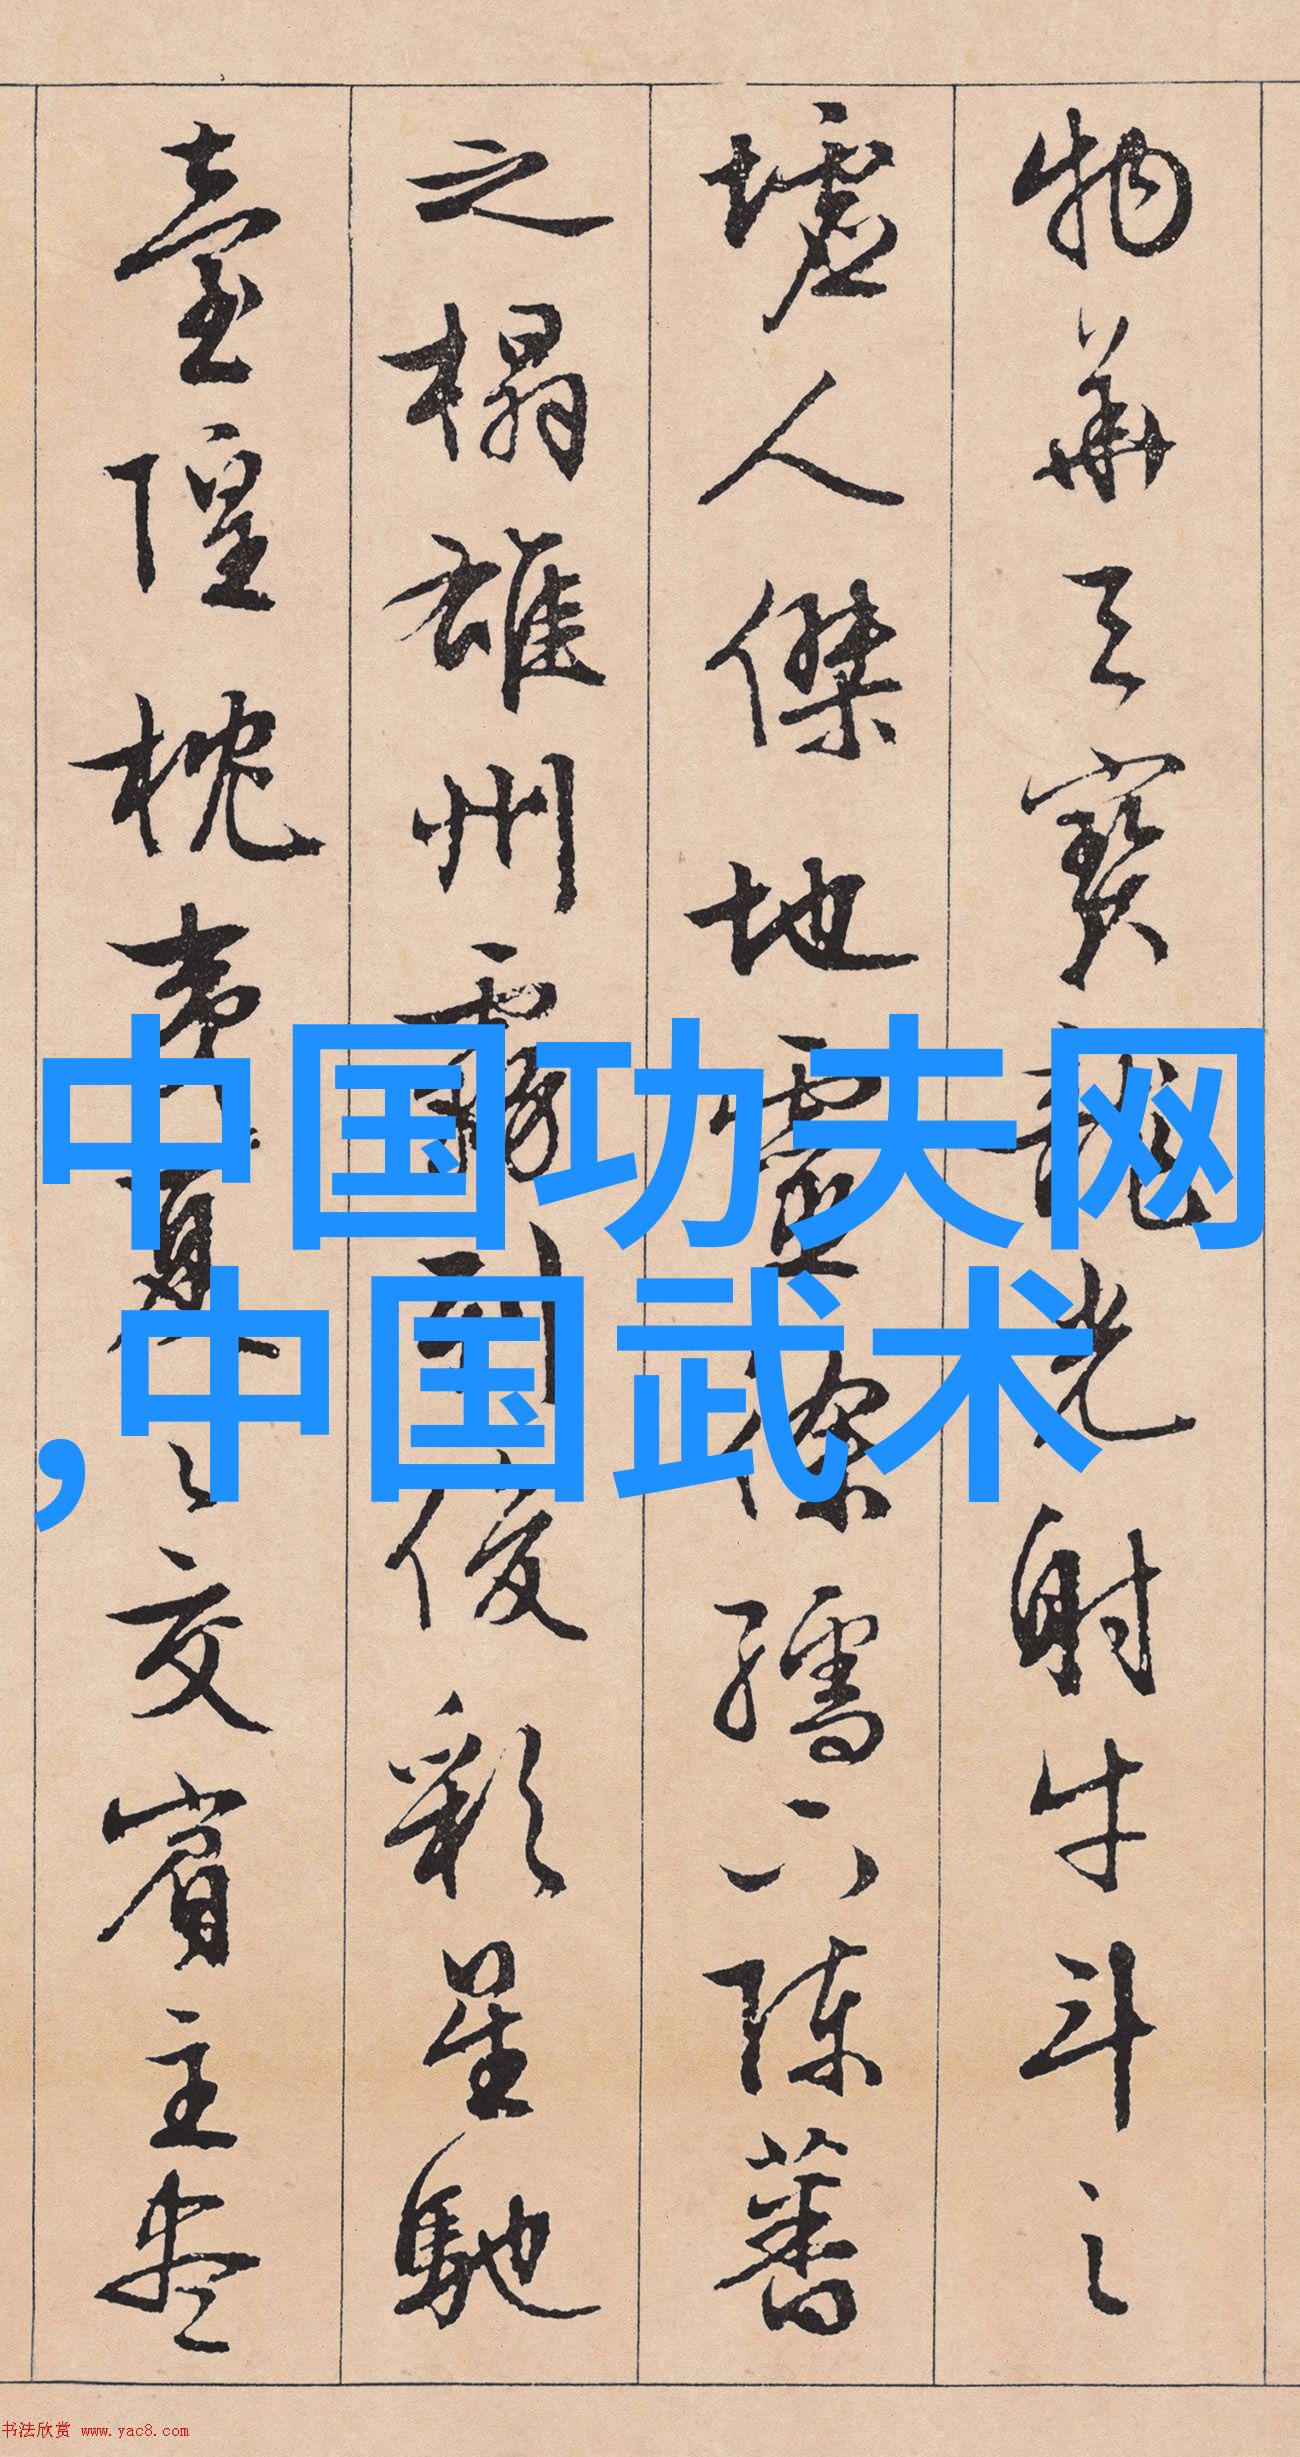 物華天寶龍光射牛斗之
墟人傑地靈徐孺下陳蕃
之榻雄州霧列俊彩星馳
臺隍枕夷夏之交賓主盡
中国功夫网
，中国武术
书法欣赏 www.yac8.com